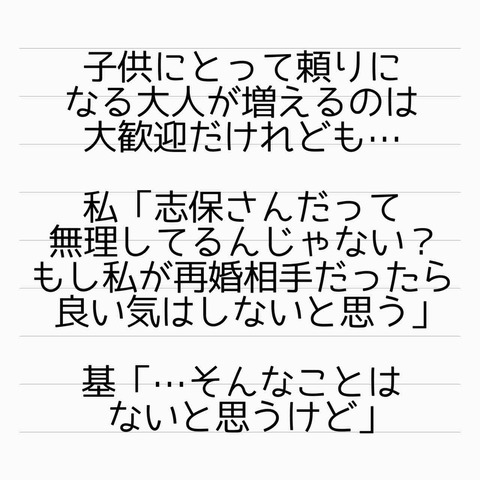 子供にとって頼りに
なる大人が増えるのは
大歓迎だけれども…
私「志保さんだって
無理してるんじゃない？
もし私が再婚相手だったら
良い気はしないと思う」
基「…そんなことは
ないと思うけど」